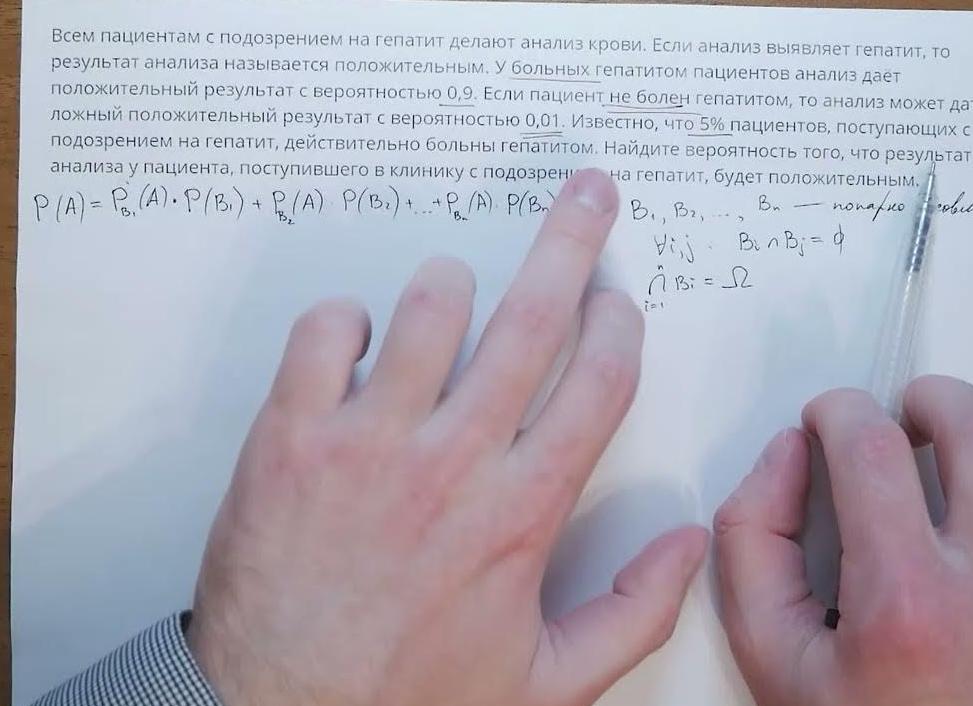 Всем пациентам с подозрением на гепатит делают анализ крови. Если анализ выявляет гепатит, то
результат анализа называется положительным. У больных гепатитом пациентов анализ даёт
положительный результат с вероятностью 0,9. Если пациент не болен гепатитом, то анализ может да
ложный положительный результат с вероятностью 0,01. Известно, что 5% пациентов, поступающих с
подозрением на гепатит, действительно больны гепатитом. Найдите вероятность того, что результат
анализа у пациента, поступившего в клинику с подозрени на гепатит, будет положительным.
P(A) = P_{B₁}(A) · P(B₁) + P_{B₂}(A) · P(B₂) + ... + P_{Bₙ}(A) · P(Bₙ) B₁, B₂, ..., Bₙ — попарно
∀i,j Bi ∩ Bj = ∅
n
∩ Bi = Ω
i=1